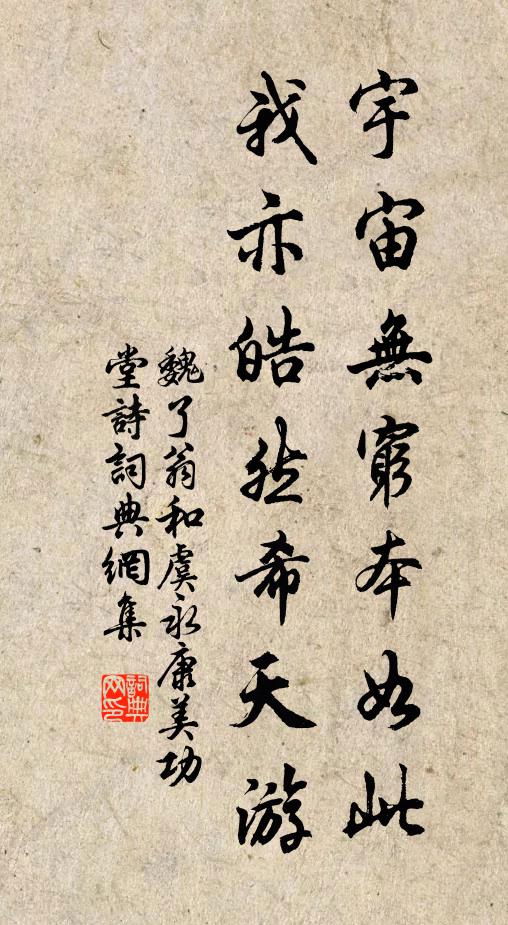 宇宙無窮本如此
我亦皓然希天游
魏了翁和虞永康美功
堂詩詞典網集
詞典
網印